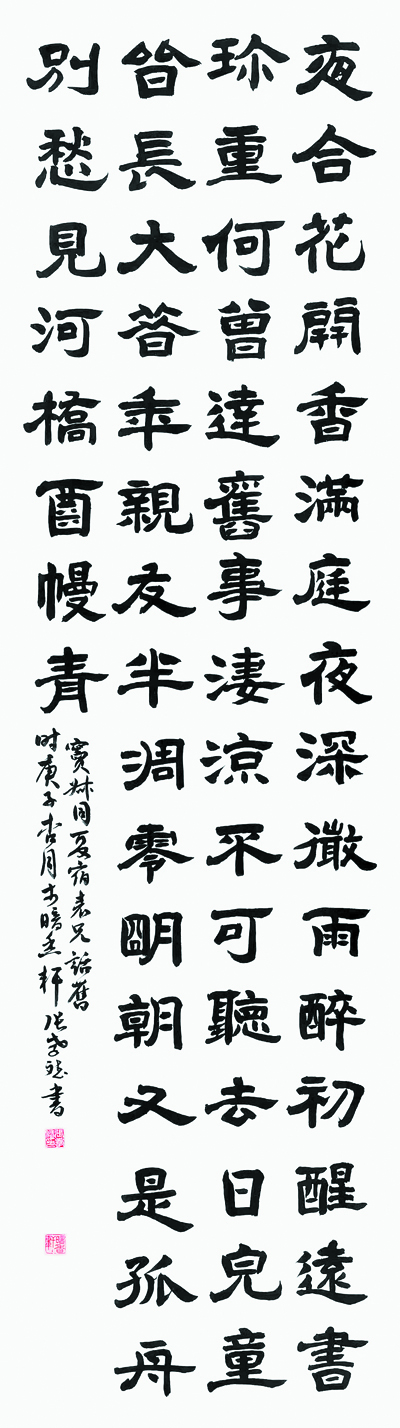 夜合花開香滿庭夜深微雨醉初醒遠書
珍重何曾達舊事淒涼不可聽去日兒童
皆長大昔年親友半凋零明朝又是孤舟
別愁見河橋酉幔青
竇叔向夏宿表兄話舊
时庚子杏月於暗香軒張書